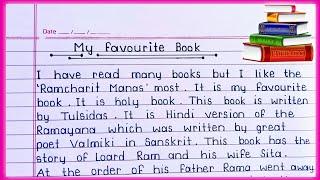 Date __/__/__
My favourite Book
I have read many books but I like the
'Ramcharit Manas' most. It is my favourite
book. It is holy book. This book is written
by Tulsidas. It is Hindi version of the
Ramayana which was written by great
poet Valmiki in Sanskrit. This book has the
story of Loard Ram and his wife Sita.
At the order of his father Rama went away
MATHEMATICS